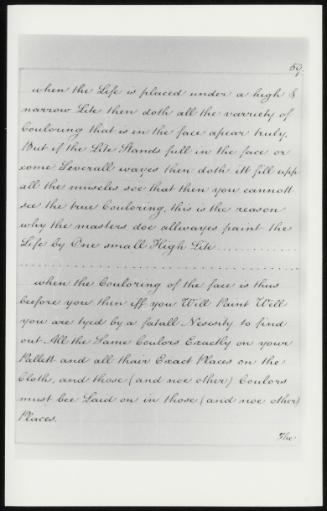 59.
when the Life is placed under a high &
narrow Lite then doth all the varriety of
Couloring that is in the face apear truly.
But if the Lite Stands full in the face or
come Severall wayes then doth itt fill upp
all the muscles soe that then you cannott
see the true Couloring, this is the reason
why the masters doe allwayes paint the
Life by One small High Lite
when the Couloring of the face is thus
before you then iff you Will Paint Well
you are tyed by a fatall Nesesity to find
out All the Same Coulors Exactly on your
Pallett and all thair Exact Places on the
Cloth, and those (and noe other) Coulors
must bee Laid on in those (and noe other)
Places.
The